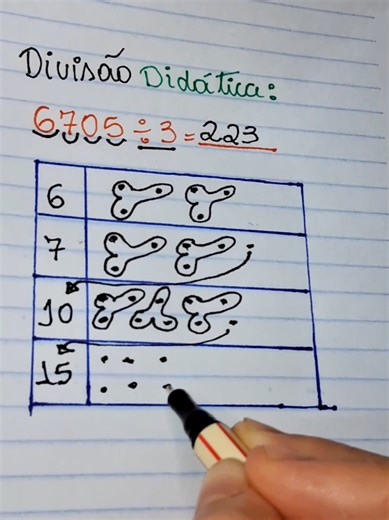 Divisão Didática:
6705 ÷ 3 = 223
6
7
10
15